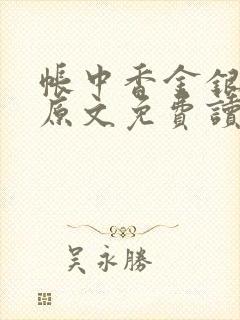 帳中香金銀
原文免費讀
吳永勝